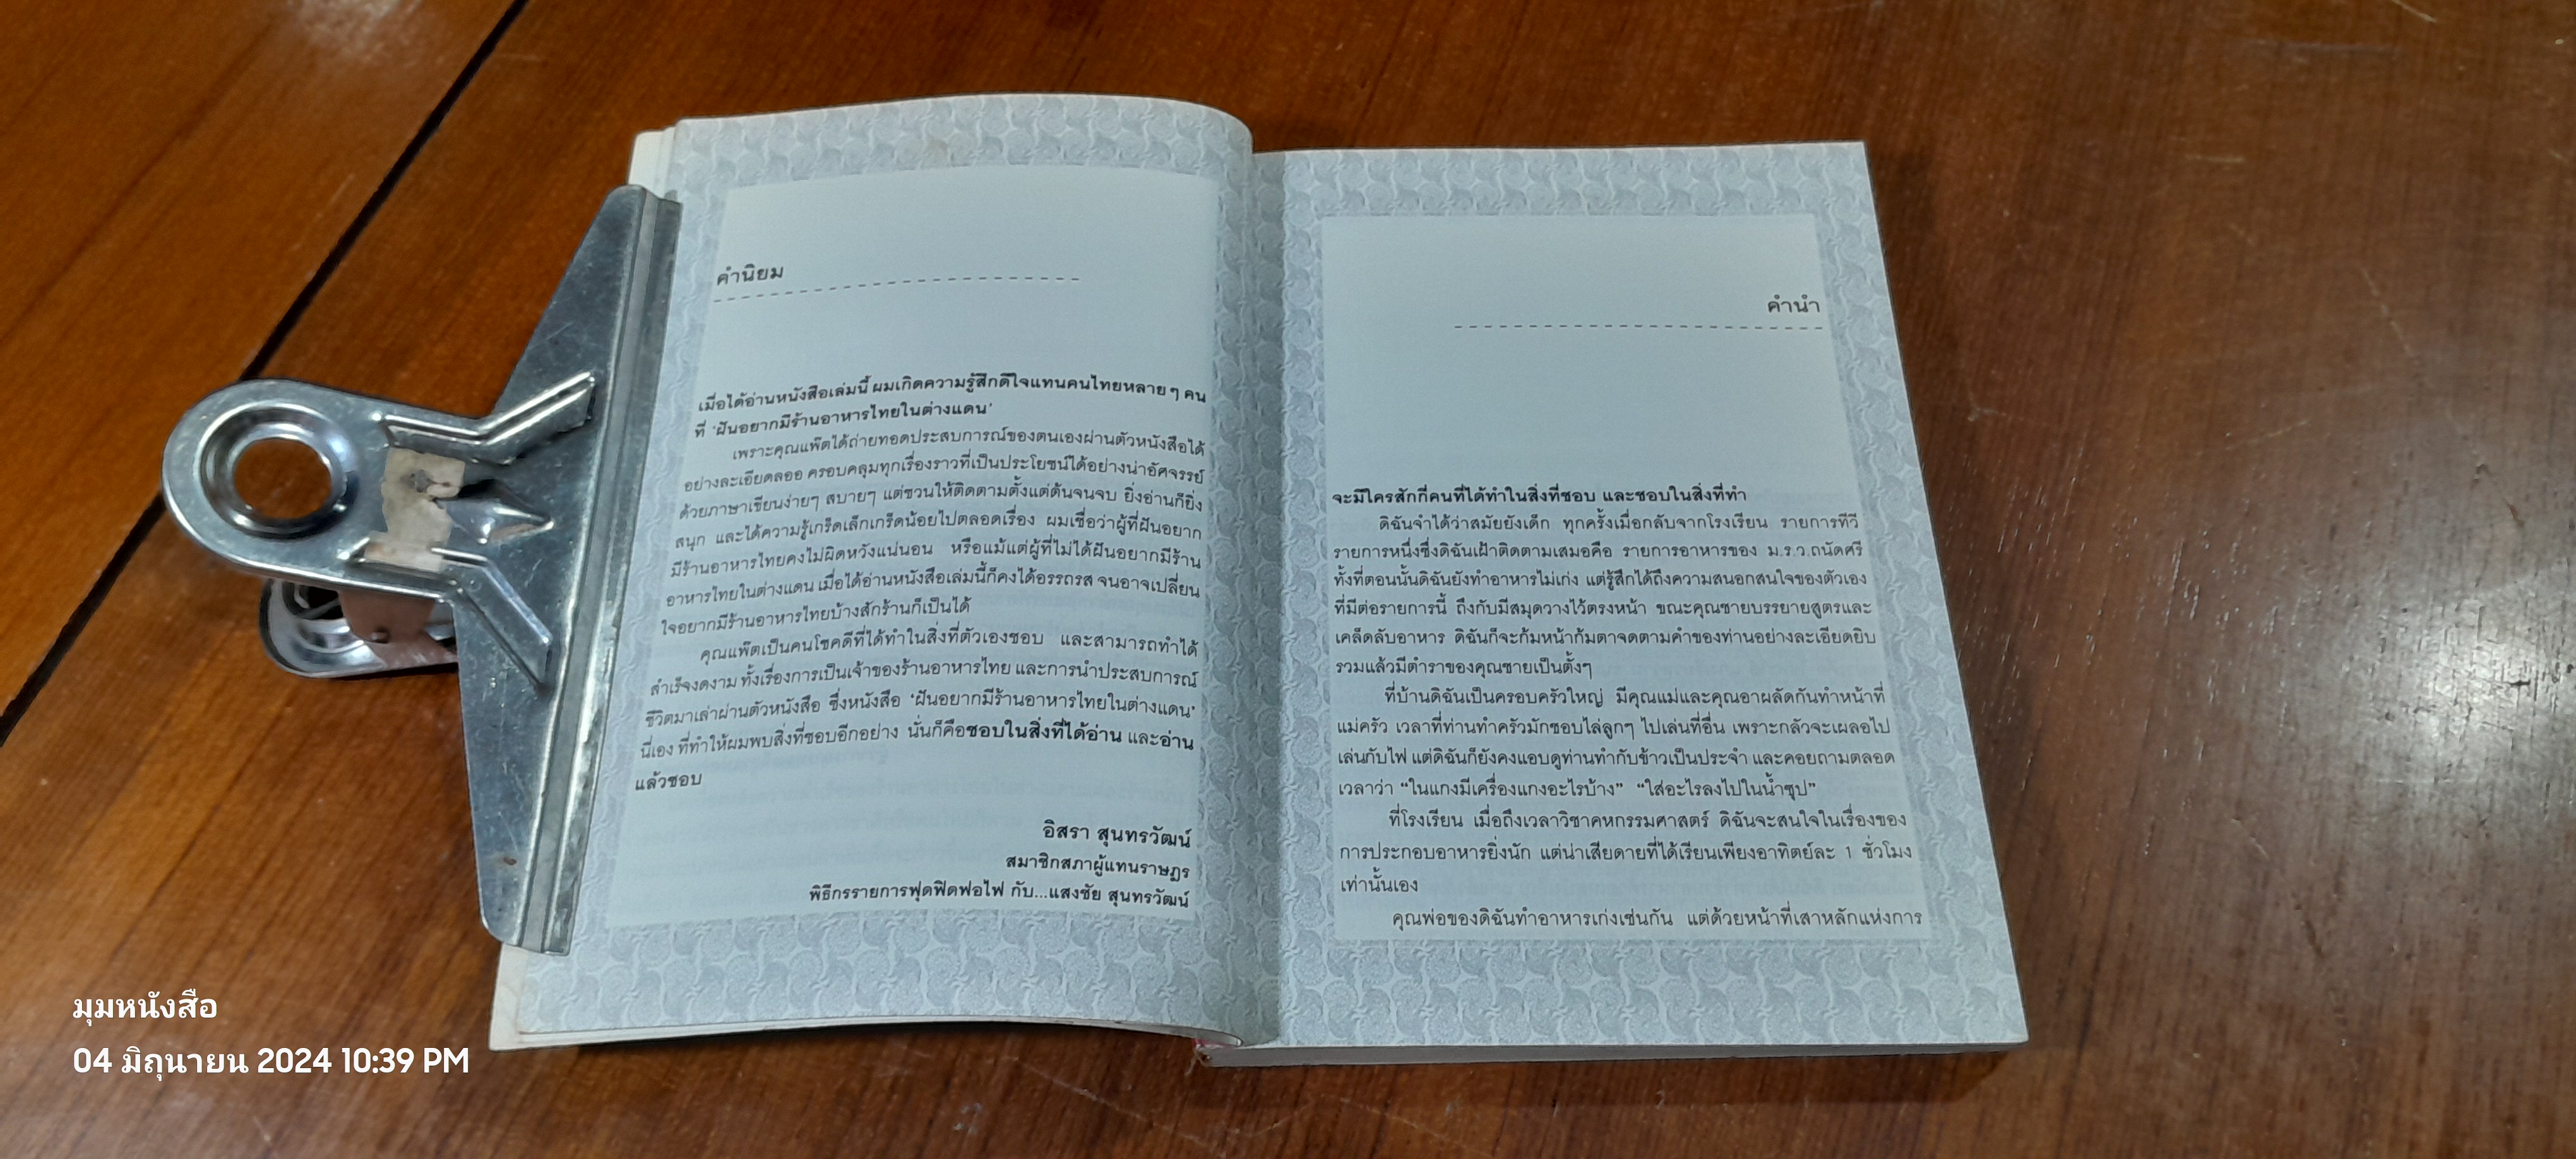 คำนิยม
เมื่อได้อ่านหนังสือเล่มนี้ ผมเกิดความรู้สึกดีใจแทนคนไทยหลายๆ คน
ที่ 'ฝันอยากมีร้านอาหารไทยในต่างแดน'
เพราะคุณแพ๊ตได้ถ่ายทอดประสบการณ์ของตนเองผ่านตัวหนังสือได้
อย่างละเอียดลออ ครอบคลุมทุกเรื่องราวที่เป็นประโยชน์ได้อย่างน่าอัศจรรย์
ด้วยภาษาเขียนง่ายๆ สบายๆ แต่ชวนให้ติดตามตั้งแต่ต้นจนจบ ยิ่งอ่านก็ยิ่ง
สนุก และได้ความรู้เกร็ดเล็กเกร็ดน้อยไปตลอดเรื่อง ผมเชื่อว่าผู้ที่ฝันอยาก
มีร้านอาหารไทยคงไม่ผิดหวังแน่นอน หรือแม้แต่ผู้ที่ไม่ได้ฝันอยากมีร้าน
อาหารไทยในต่างแดน เมื่อได้อ่านหนังสือเล่มนี้ก็คงได้อรรถรส จนอาจเปลี่ยน
ใจอยากมีร้านอาหารไทยบ้างสักร้านก็เป็นได้
คุณแพ๊ตเป็นคนโชคดีที่ได้ทำในสิ่งที่ตัวเองชอบ และสามารถทำได้
สำเร็จงดงาม ทั้งเรื่องการเป็นเจ้าของร้านอาหารไทย และการนำประสบการณ์
ชีวิตมาเล่าผ่านตัวหนังสือ ซึ่งหนังสือ 'ฝันอยากมีร้านอาหารไทยในต่างแดน'
นี่เอง ที่ทำให้ผมพบสิ่งที่ชอบอีกอย่าง นั่นก็คือชอบในสิ่งที่ได้อ่าน และอ่าน
แล้วชอบ
อิสรา สุนทรวัฒน์
สมาชิกสภาผู้แทนราษฎร
พิธีกรรายการฟุดฟิดฟอไฟ กับ...แสงชัย สุนทรวัฒน์
คำนำ
จะมีใครสักกี่คนที่ได้ทำในสิ่งที่ชอบ และชอบในสิ่งที่ทำ
ดิฉันจำได้ว่าสมัยยังเด็ก ทุกครั้งเมื่อกลับจากโรงเรียน รายการทีวี
รายการหนึ่งซึ่งดิฉันเฝ้าติดตามเสมอคือ รายการอาหารของ ม.ร.ว.ถนัดศรี
ทั้งที่ตอนนั้นดิฉันยังทำอาหารไม่เก่ง แต่รู้สึกได้ถึงความสนอกสนใจของตัวเอง
ที่มีต่อรายการนี้ ถึงกับมีสมุดวางไว้ตรงหน้า ขณะคุณชายบรรยายสูตรและ
เคล็ดลับอาหาร ดิฉันก็จะก้มหน้าก้มตาจดตามคำของท่านอย่างละเอียดยิบ
รวมแล้วมีตำราของคุณชายเป็นตั้งๆ
ที่บ้านดิฉันเป็นครอบครัวใหญ่ มีคุณแม่และคุณอาผลัดกันทำหน้าที่
แม่ครัว เวลาที่ท่านทำครัวมักชอบไล่ลูกๆ ไปเล่นที่อื่น เพราะกลัวจะเผลอไป
เล่นกับไฟ แต่ดิฉันก็ยังคงแอบดูท่านทำกับข้าวเป็นประจำ และคอยถามตลอด
เวลาว่า “ในแกงมีเครื่องแกงอะไรบ้าง” “ใส่อะไรลงไปในน้ำซุป”
ที่โรงเรียน เมื่อถึงเวลาวิชาคหกรรมศาสตร์ ดิฉันจะสนใจในเรื่องของ
การประกอบอาหารยิ่งนัก แต่น่าเสียดายที่ได้เรียนเพียงอาทิตย์ละ 1 ชั่วโมง
เท่านั้นเอง
คุณพ่อของดิฉันทำอาหารเก่งเช่นกัน แต่ด้วยหน้าที่เสาหลักแห่งการ
มุมหนังสือ
04 มิถุนายน 2024 10:39 PM